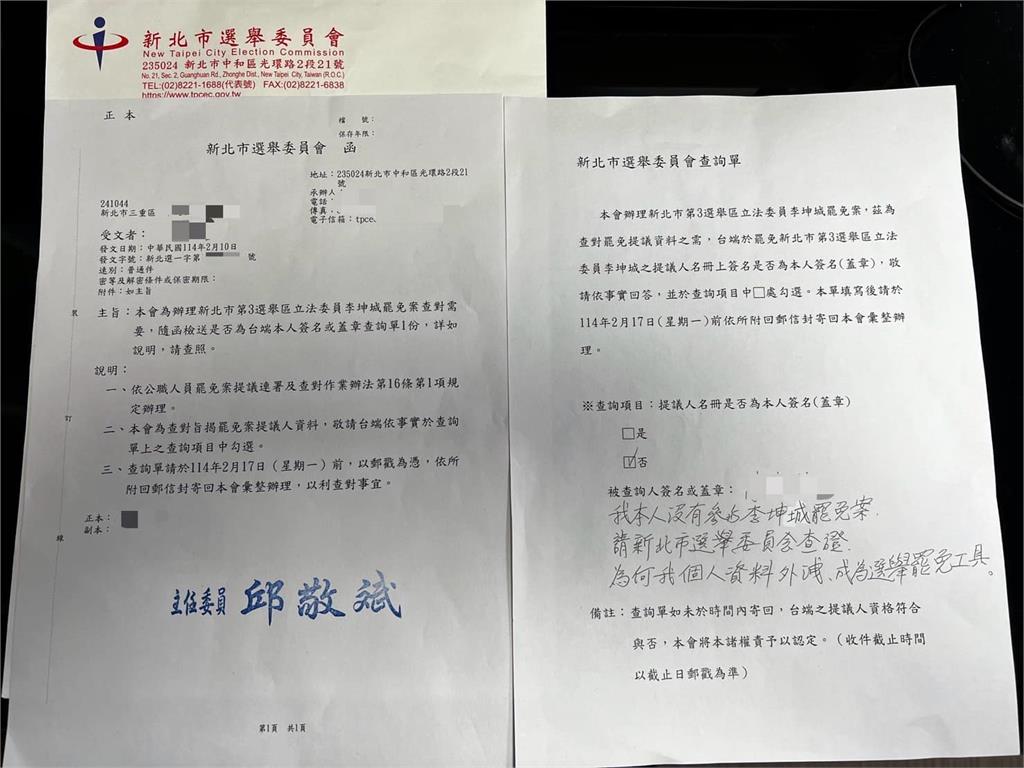 新北市選舉委員會
New Taipei City Election Commission
235024 新北市中和區光環路2段21號
No. 21, Sec. 2, Guanghuan Rd., Zhonghe Dist., New Taipei City, Taiwan (R.O.C.)
TEL:(02)8221-1688(代表號) FAX:(02)8221-6838
https://www.tpcec.gov.tw
正本
檔 號：
保存年限：
新北市選舉委員會 函
地址：235024新北市中和區光環路2段21
號
承辦人：
電話：
傳真：
電子信箱：tpce
241044
新北市三重區
受文者：
發文日期：中華民國114年2月10日
發文字號：新北選一字第 號
速別：普通件
密等及解密條件或保密期限：
附件：如主旨
主旨：本會為辦理新北市第3選舉區立法委員李坤城罷免案查對需
要，隨函檢送是否為台端本人簽名或蓋章查詢單1份，詳如
說明，請查照。
說明：
一、依公職人員罷免案提議連署及查對作業辦法第16條第1項規
定辦理。
二、本會為查對旨揭罷免案提議人資料，敬請台端依事實於查詢
單上之查詢項目中勾選。
三、查詢單請於114年2月17日（星期一）前，以郵戳為憑，依所
附回郵信封寄回本會彙整辦理，以利查對事宜。
正本：
副本：
裝
訂
線
主任委員 邱敬斌
第1頁 共1頁
新北市選舉委員會查詢單
本會辦理新北市第3選舉區立法委員李坤城罷免案，茲為
查對罷免提議資料之需，台端於罷免新北市第3選舉區立法
委員李坤城之提議人名冊上簽名是否為本人簽名(蓋章)，敬
請依事實回答，並於查詢項目中□處勾選。本單填寫後請於
114年2月17日(星期一)前依所附回郵信封寄回本會彙整辦
理。
※查詢項目：提議人名冊是否為本人簽名(蓋章)
□是
☑否
被查詢人簽名或蓋章：
我本人沒有參與李坤城罷免案.
請新北市選舉委員會查證.
為何我個人資料外洩、成為選舉罷免工具。
備註：查詢單如未於時間內寄回，台端之提議人資格符合
與否，本會將本諸權責予以認定。（收件截止時間
以截止日郵戳為準）